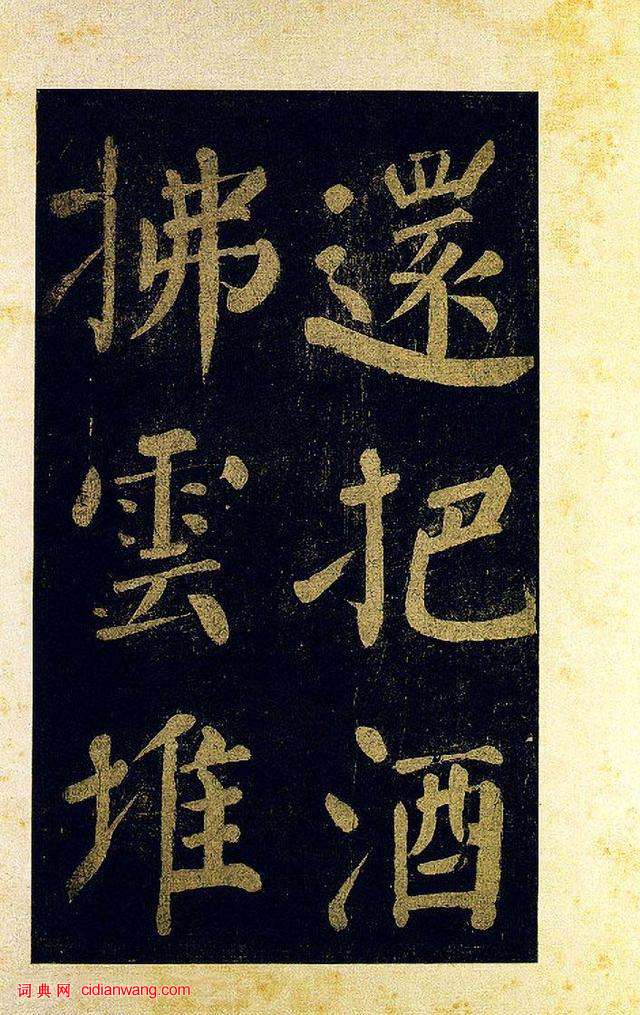 還把酒
拂雲堆
词典网 cidianwang.com